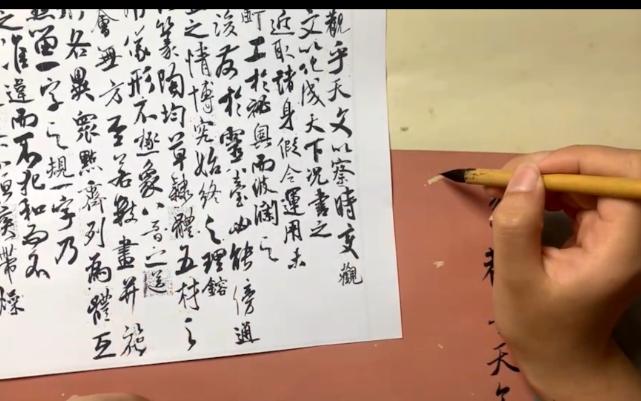 觀乎天文以察時變觀
文以化成天下況書之
近取諸身假令運用未
工於秘奧而波瀾之
發於靈臺必能傍通
之情博究始終之理鎔
篆陶均草隸體五材之
儀形不極象八音之迭
會無方至若數畫並施
各異眾點齊列為體互
一字之規一字乃
之準違而不犯和而不
疾帶燥
天